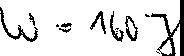 W = 160 J